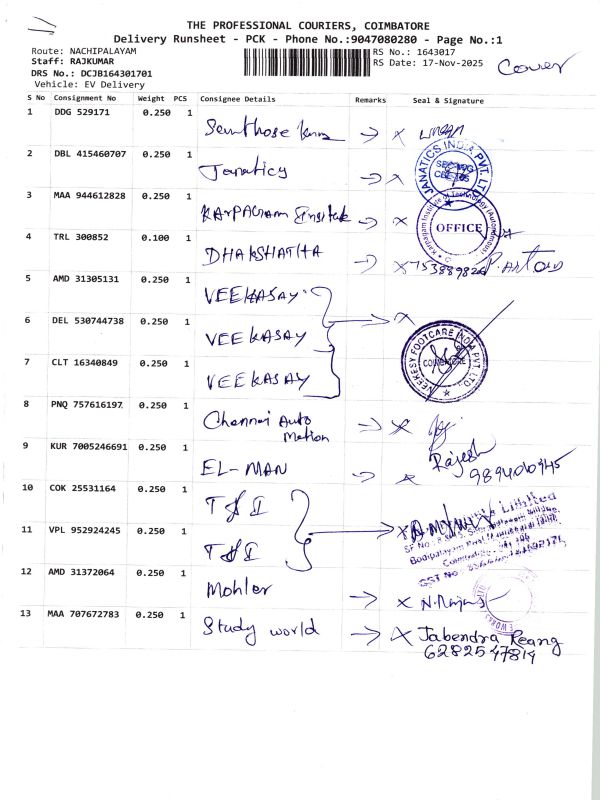 THE PROFESSIONAL COURIERS, COIMBATORE
Delivery Runsheet - PCK - Phone No.:9047080280 - Page No.:1
Route: NACHIPALAYAM
RS No.: 1643017
Staff: RAJKUMAR
RS Date: 17-Nov-2025
Cover
DRS No.: DCJB164301701
Vehicle: EV Delivery
S No Consignment No Weight PCS Consignee Details Remarks Seal & Signature
1 DDG 529171 0.250 1
2 DBL 415460707 0.250 1 Janaticy
JANATICS INDIA PVT. LTD
3 MAA 944612828 0.250 1 KARPAGAM
Karpagam Institute of Technology (Autonomous)
OFFICE
4 TRL 300852 0.100 1 DHAKSHATHA
5 AMD 31305131 0.250 1 VEEKASAY
6 DEL 530744738 0.250 1 VEEKASAY
VEEKESY FOOTCARE INDIA PVT. LTD.
COIMBATORE
7 CLT 16340849 0.250 1 VEEKASAY
8 PNQ 757616197 0.250 1 Chennai Auto Mation
9 KUR 7005246691 0.250 1 EL-MAN
Rajesh
10 COK 25531164 0.250 1 T & I
Limited
11 VPL 952924245 0.250 1 T & I
GST No
12 AMD 31372064 0.250 1 Mohler
13 MAA 707672783 0.250 1 Study world
Jabendra Reang
6282547814